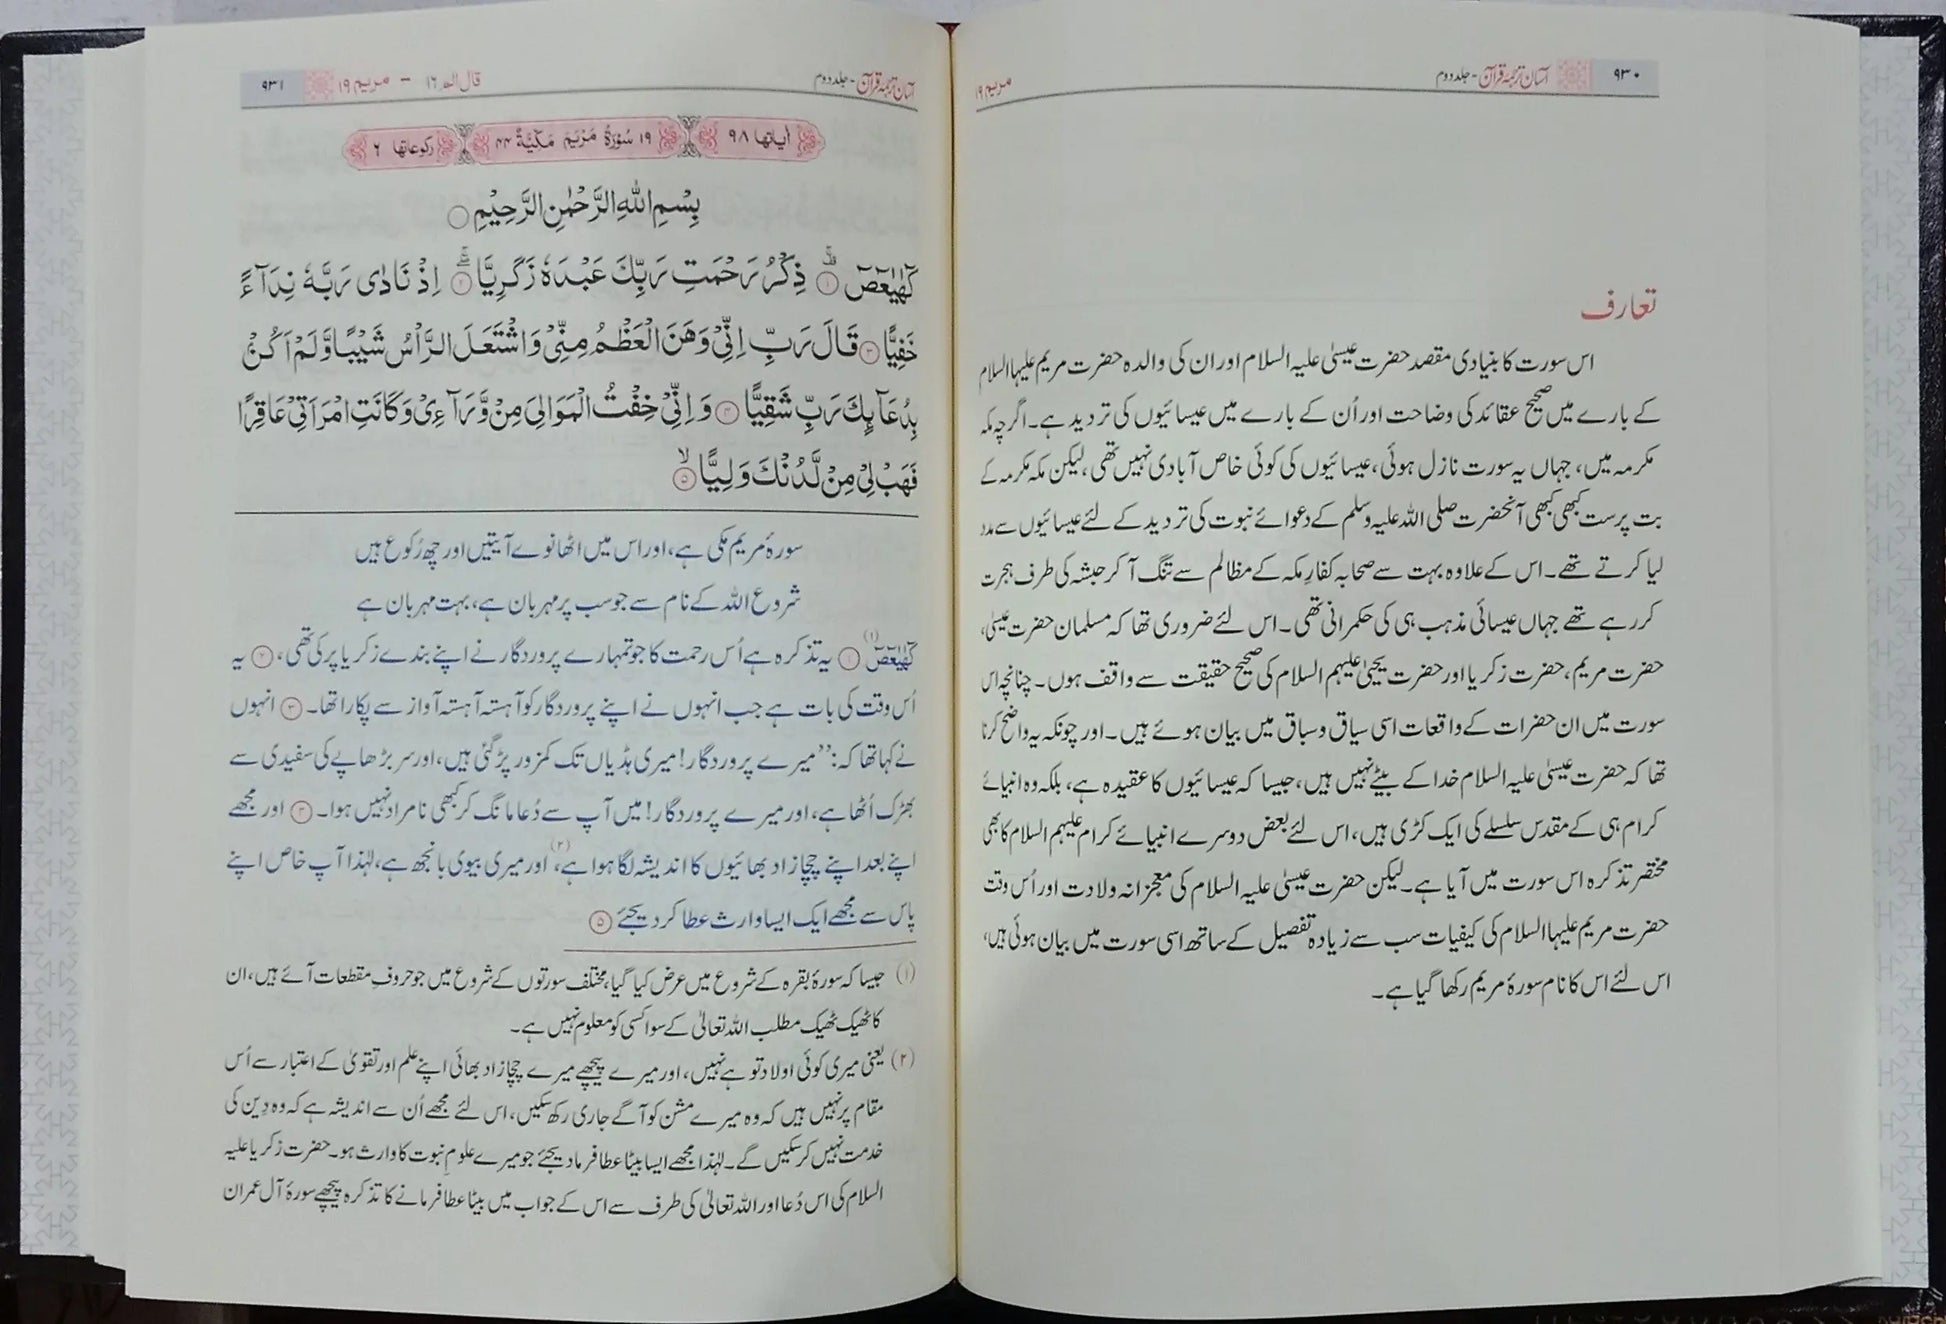 ۹۳۰ آسان ترجمۂ قرآن - جلد دوم مریم ۱۹
تعارف
اس سورت کا بنیادی مقصد حضرت عیسیٰ علیہ السلام اور ان کی والدہ حضرت مریم علیہا السلام
کے بارے میں صحیح عقائد کی وضاحت اور اُن کے بارے میں عیسائیوں کی تردید ہے۔ اگرچہ مکہ
مکرمہ میں، جہاں یہ سورت نازل ہوئی، عیسائیوں کی کوئی خاص آبادی نہیں تھی، لیکن مکہ مکرمہ کے
بت پرست کبھی کبھی آنحضرت صلی اللہ علیہ وسلم کے دعوائے نبوت کی تردید کے لئے عیسائیوں سے مدد
لیا کرتے تھے۔ اس کے علاوہ بہت سے صحابہ کفارِ مکہ کے مظالم سے تنگ آکر حبشہ کی طرف ہجرت
کر رہے تھے جہاں عیسائی مذہب ہی کی حکمرانی تھی۔ اس لئے ضروری تھا کہ مسلمان حضرت عیسیٰ،
حضرت مریم، حضرت زکریا اور حضرت یحییٰ علیہم السلام کی صحیح حقیقت سے واقف ہوں۔ چنانچہ اس
سورت میں ان حضرات کے واقعات اسی سیاق و سباق میں بیان ہوئے ہیں۔ اور چونکہ یہ واضح کرنا
تھا کہ حضرت عیسیٰ علیہ السلام خدا کے بیٹے نہیں ہیں، جیسا کہ عیسائیوں کا عقیدہ ہے، بلکہ وہ انبیائے
کرام ہی کے مقدس سلسلے کی ایک کڑی ہیں، اس لئے بعض دوسرے انبیائے کرام علیہم السلام کا بھی
مختصر تذکرہ اس سورت میں آیا ہے۔ لیکن حضرت عیسیٰ علیہ السلام کی معجزانہ ولادت اور اُس وقت
حضرت مریم علیہا السلام کی کیفیات سب سے زیادہ تفصیل کے ساتھ اسی سورت میں بیان ہوئی ہیں،
اس لئے اس کا نام سورۂ مریم رکھا گیا ہے۔
آسان ترجمۂ قرآن - جلد دوم قال الم ۱۶ – مریم ۱۹ ۹۳۱
اٰیاتها ۹۸ ۱۹ سُوْرَةُ مَرْيَمَ مَكِّيَّةٌ ۴۴ رکوعاتها ۶
بِسْمِ اللّٰهِ الرَّحْمٰنِ الرَّحِيْمِ
كٓهٰيٰعٓصٓ ۱ ذِكْرُ رَحْمَتِ رَبِّكَ عَبْدَهٗ زَكَرِيَّا ۲ اِذْ نَادٰى رَبَّهٗ نِدَآءً
خَفِيًّا ۳ قَالَ رَبِّ اِنِّيْ وَهَنَ الْعَظْمُ مِنِّيْ وَاشْتَعَلَ الرَّاْسُ شَيْبًا وَّلَمْ اَكُنْۢ
بِدُعَآئِكَ رَبِّ شَقِيًّا ۴ وَاِنِّيْ خِفْتُ الْمَوَالِيَ مِنْ وَّرَآءِيْ وَكَانَتِ امْرَاَتِيْ عَاقِرًا
فَهَبْ لِيْ مِنْ لَّدُنْكَ وَلِيًّا ۵
سورۂ مریم مکی ہے، اور اس میں اٹھانوے آیتیں اور چھ رُکوع ہیں
شروع اللہ کے نام سے جو سب پر مہربان ہے، بہت مہربان ہے
كٓهٰيٰعٓصٓ (۱) ۱ یہ تذکرہ ہے اُس رحمت کا جو تمہارے پروردگار نے اپنے بندے زکریا پر کی تھی، ۲ یہ
اُس وقت کی بات ہے جب انہوں نے اپنے پروردگار کو آہستہ آہستہ آواز سے پکارا تھا۔ ۳ انہوں
نے کہا تھا کہ: ’’میرے پروردگار! میری ہڈیاں تک کمزور پڑ گئی ہیں، اور سر بڑھاپے کی سفیدی سے
بھڑک اُٹھا ہے، اور میرے پروردگار! میں آپ سے دُعا مانگ کر کبھی نامراد نہیں ہوا۔ ۴ اور مجھے
اپنے بعد اپنے چچا زاد بھائیوں کا اندیشہ لگا ہوا ہے، (۲) اور میری بیوی بانجھ ہے، لہٰذا آپ خاص اپنے
پاس سے مجھے ایک ایسا وارث عطا کر دیجئے ۵
(۱) جیسا کہ سورۂ بقرہ کے شروع میں عرض کیا گیا، مختلف سورتوں کے شروع میں جو حروفِ مقطعات آئے ہیں، ان
کا ٹھیک ٹھیک مطلب اللہ تعالیٰ کے سوا کسی کو معلوم نہیں ہے۔
(۲) یعنی میری کوئی اولاد تو ہے نہیں، اور میرے پیچھے میرے چچا زاد بھائی اپنے علم اور تقویٰ کے اعتبار سے اُس
مقام پر نہیں ہیں کہ وہ میرے مشن کو آگے جاری رکھ سکیں، اس لئے مجھے اُن سے اندیشہ ہے کہ وہ دِین کی
خدمت نہیں کر سکیں گے۔ لہٰذا مجھے ایسا بیٹا عطا فرما دیجئے جو میرے علومِ نبوت کا وارث ہو۔ حضرت زکریا علیہ
السلام کی اس دُعا اور اللہ تعالیٰ کی طرف سے اس کے جواب میں بیٹا عطا فرمانے کا تذکرہ پیچھے سورۂ آل عمران